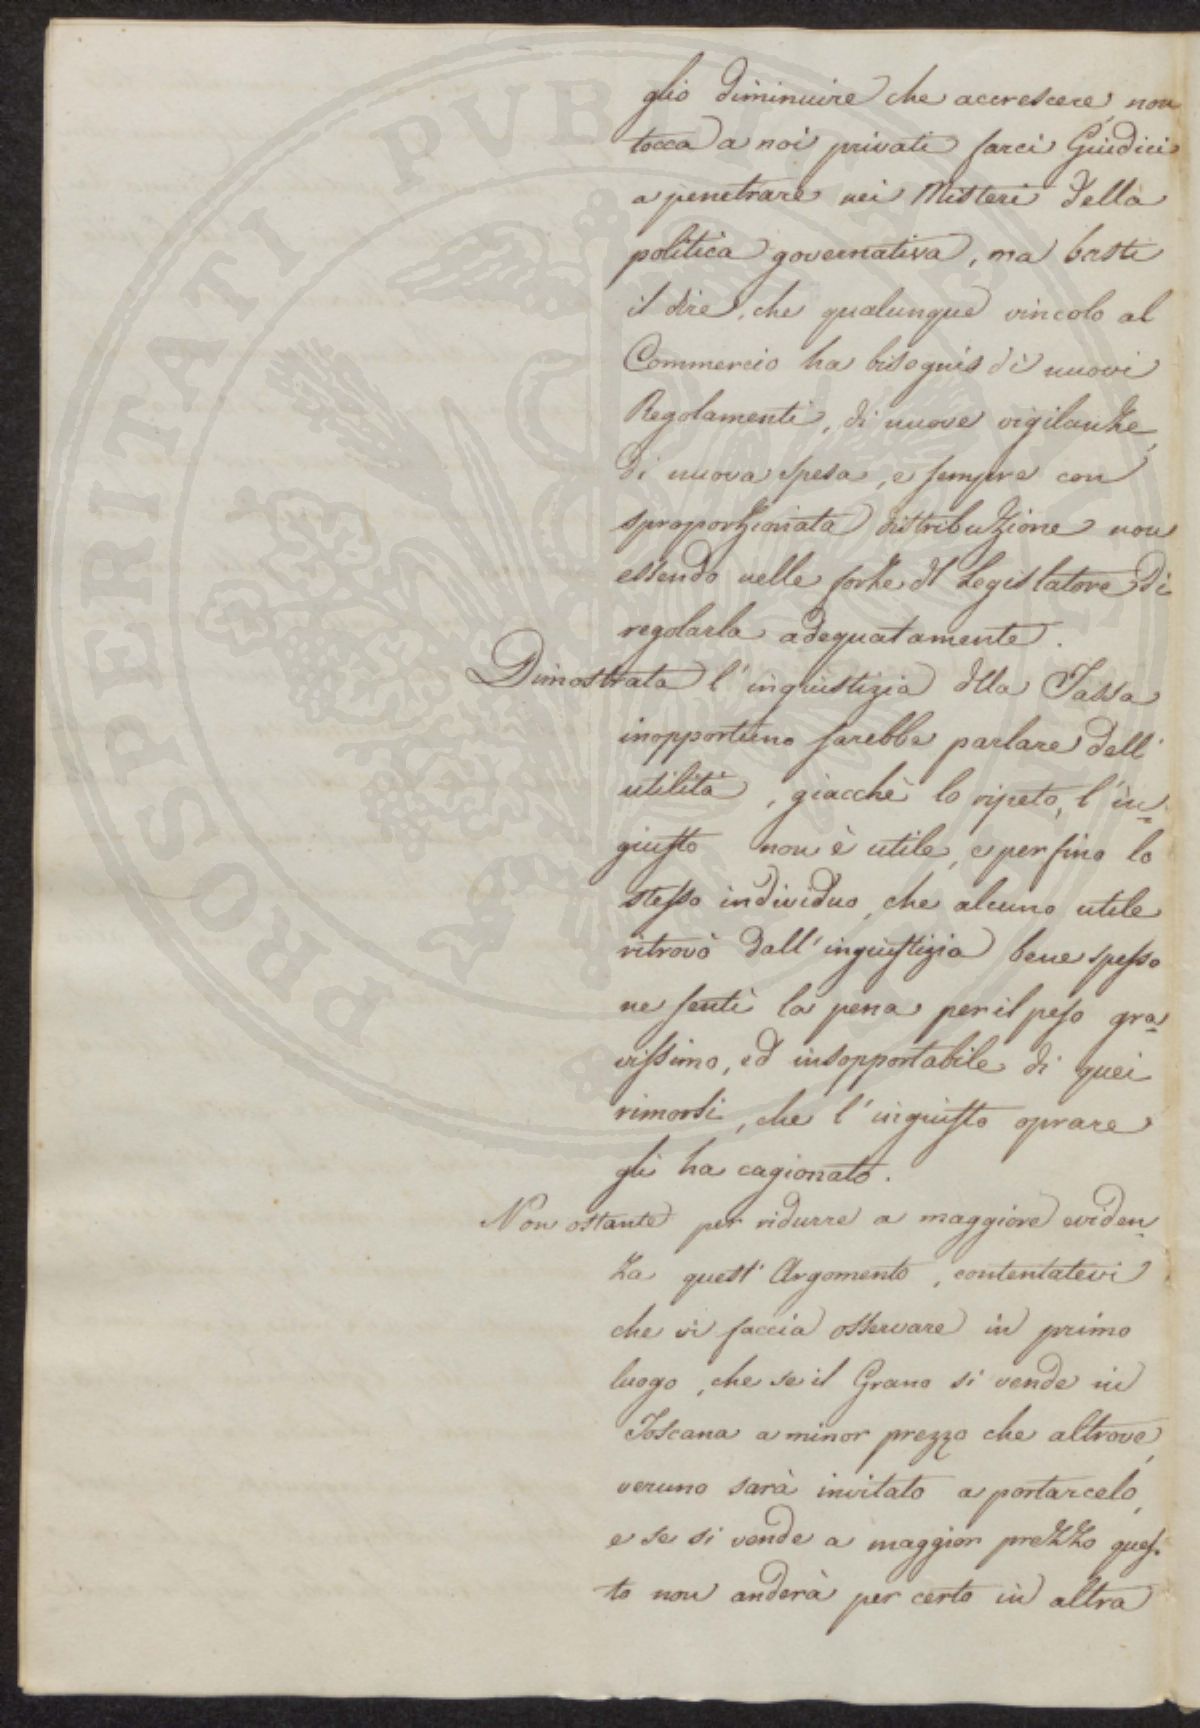 glio diminuire che accrescere, non
tocca a noi privati farci Giudici
a penetrare nei Misteri della
politica governativa, ma basti
il dire, che qualunque vincolo al
Commercio ha bisogno di nuovi
Regolamenti, di nuove vigilanze,
di nuova spesa, e sempre con
sproporzionata distribuzione non
essendo nelle forze dl Legislatore di
regolarla adequatamente.
Dimostrata l'ingiustizia dlla Tassa
inopportuno sarebbe parlare dell'
utilità, giacchè lo ripeto, l'in=
giusto non è utile, e perfino lo
stesso individuo, che alcuno utile
ritrovò dall'ingiustizia bene spesso
ne sentì la pena per il peso gra=
vissimo, ed insopportabile di quei
rimorsi, che l'ingiusto oprare
gli ha cagionato.
Non ostante per ridurre a maggiore eviden=
za quest'Argomento, contentatevi
che vi faccia osservare in primo
luogo, che se il Grano si vende in
Toscana a minor prezzo che altrove,
veruno sarà invitato a portarcelo,
e se si vende a maggior prezzo ques=
to non anderà per certo in altra
PROSPERITATI PVBLICAE